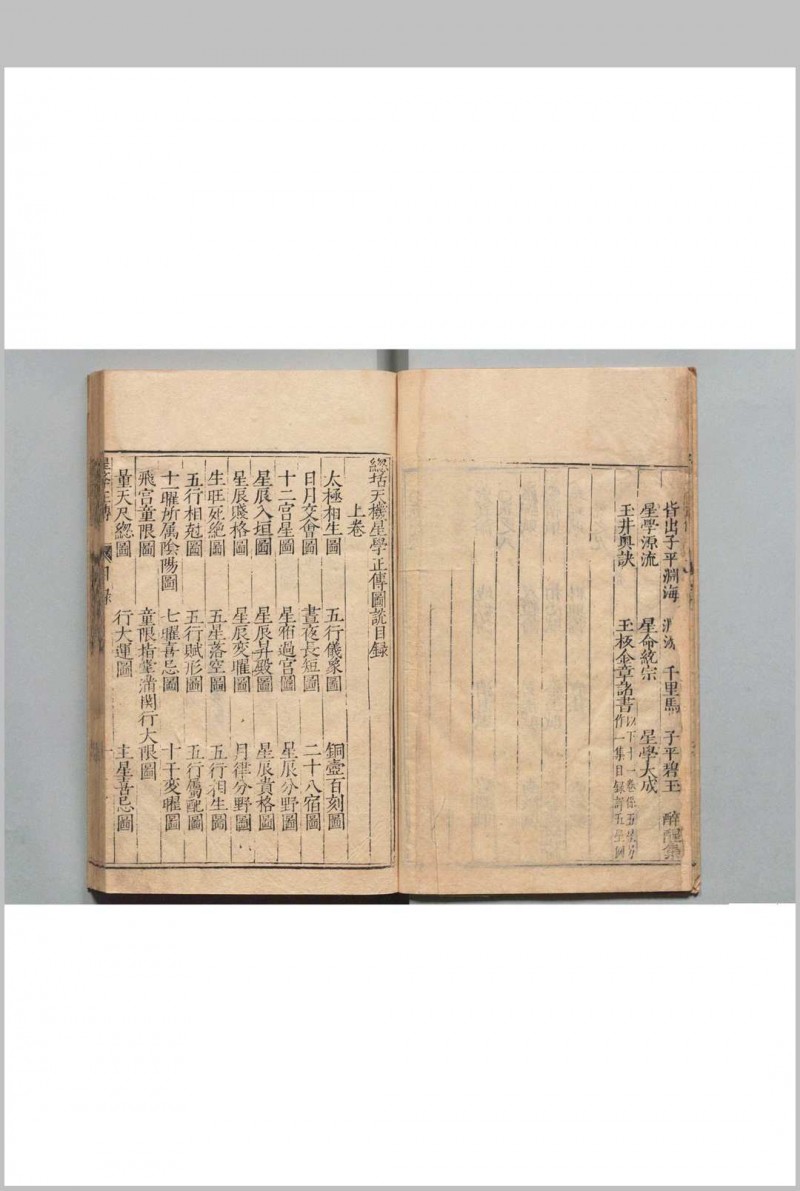 皆出子平淵海 淵源 千里馬 子平碧玉 醉醒集
星學源流 星命統宗 星學大成
玉井奧訣 玉核金章諸書
總括天機星學正傳圖說目錄
上卷
太極相生圖 五行儀象圖 銅壼百刻圖
日月交會圖 晝夜長短圖 二十八宿圖
十二宮星圖 星布過宮圖 星辰分野圖
星辰入垣圖 星辰昇殿圖 星辰貴格圖
星辰賤格圖 星辰変曜圖 月律分野圖
生旺死絶圖 五星落空圖 五行相生圖
五行相尅圖 五行賦形圖 五行屬配圖
十一曜所属陰陽圖 七曜喜忌圖 十干変曜圖
飛宮童限圖 童限指掌滿関行大限圖
量天尺總圖 行大運圖 主星喜忌圖